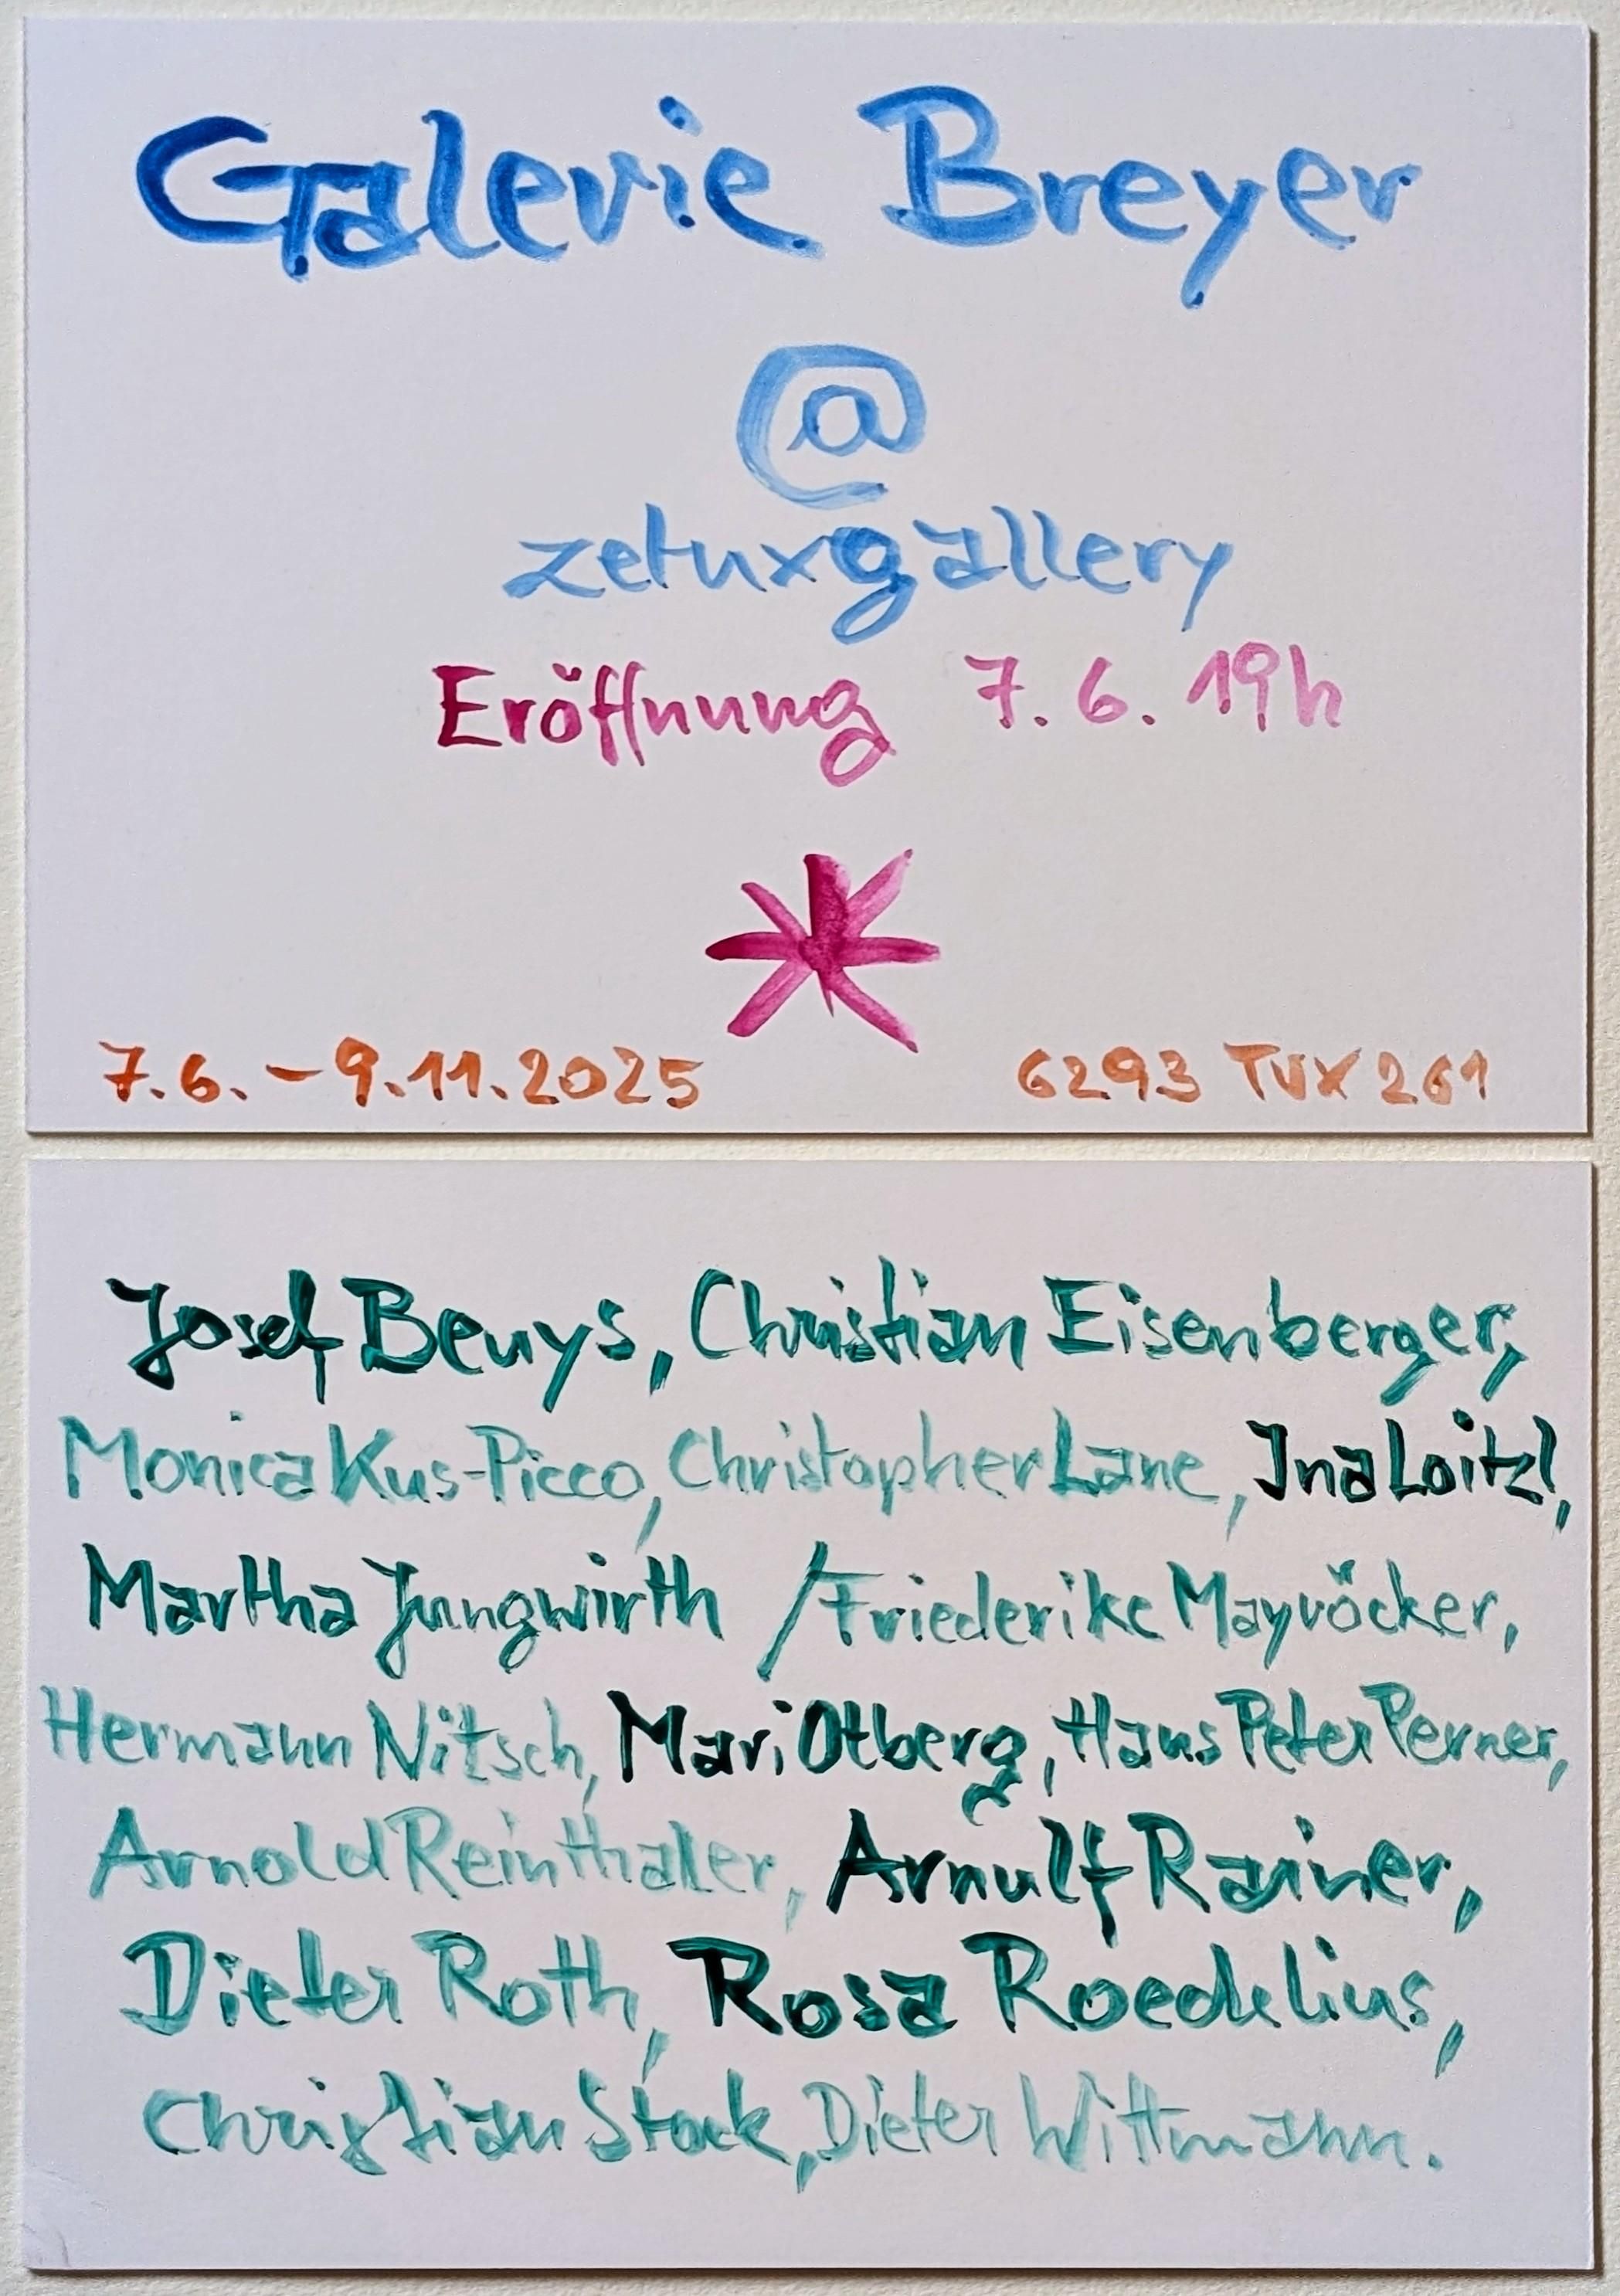 Galerie Breyer
@
zetuxgallery
Eröffnung 7.6. 19h
7.6. - 9.11.2025 6293 TUX 261
Josef Beuys, Christian Eisenberger,
Monica Kus-Picco, Christopher Lane, Ina Loitzl,
Martha Jungwirth / Friederike Mayröcker,
Hermann Nitsch, Mari Otberg, Hans Peter Perner,
Arnold Reinthaler, Arnulf Rainer,
Dieter Roth, Rosa Roedelius,
Christian Stock, Dieter Wittmann.